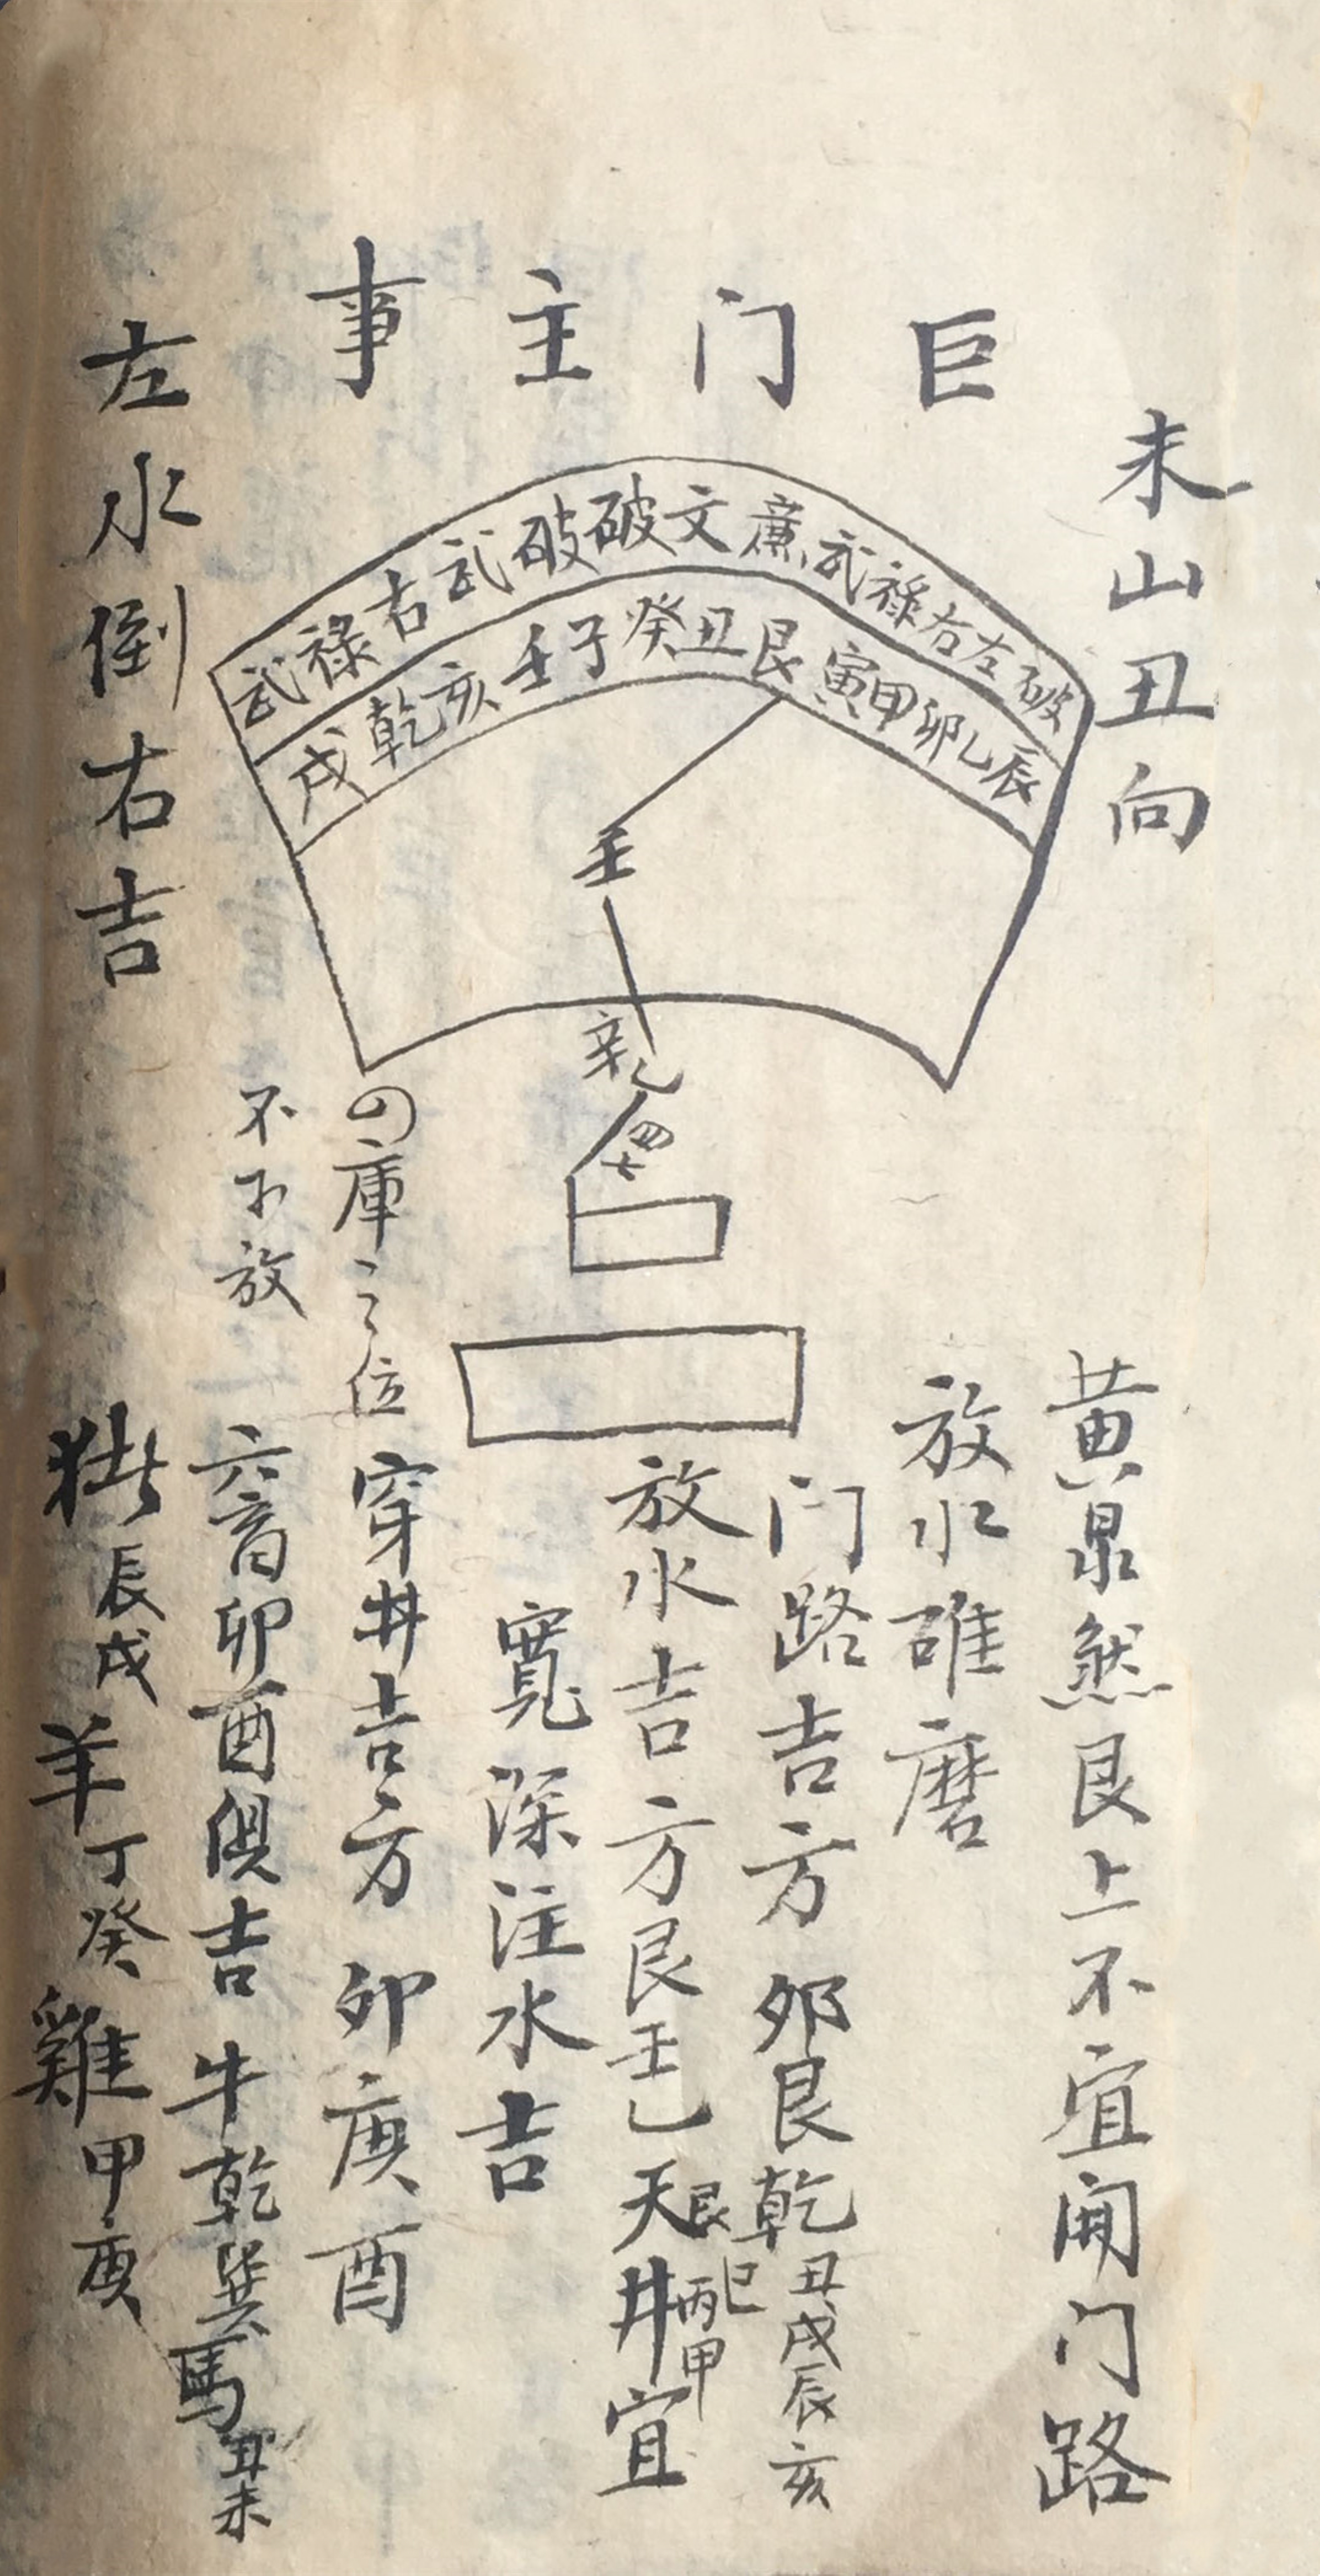 未山丑向
巨门主事
破左右禄武廉文破破武右禄武
辰乙卯甲寅艮丑癸子壬亥乾戌
壬
辛
乙
四
七
左水倒右吉
黄泉煞艮上不宜開门路
放水碓磨
门路吉方卯艮乾丑戌辰亥
放水吉方艮壬乙天井宜
艮巳丙甲
寬深注水吉
庫之位
不可放
穿井吉方卯庚酉
六畜卯酉俱吉牛乾巽馬丑未
辰戌羊丁癸雞甲庚